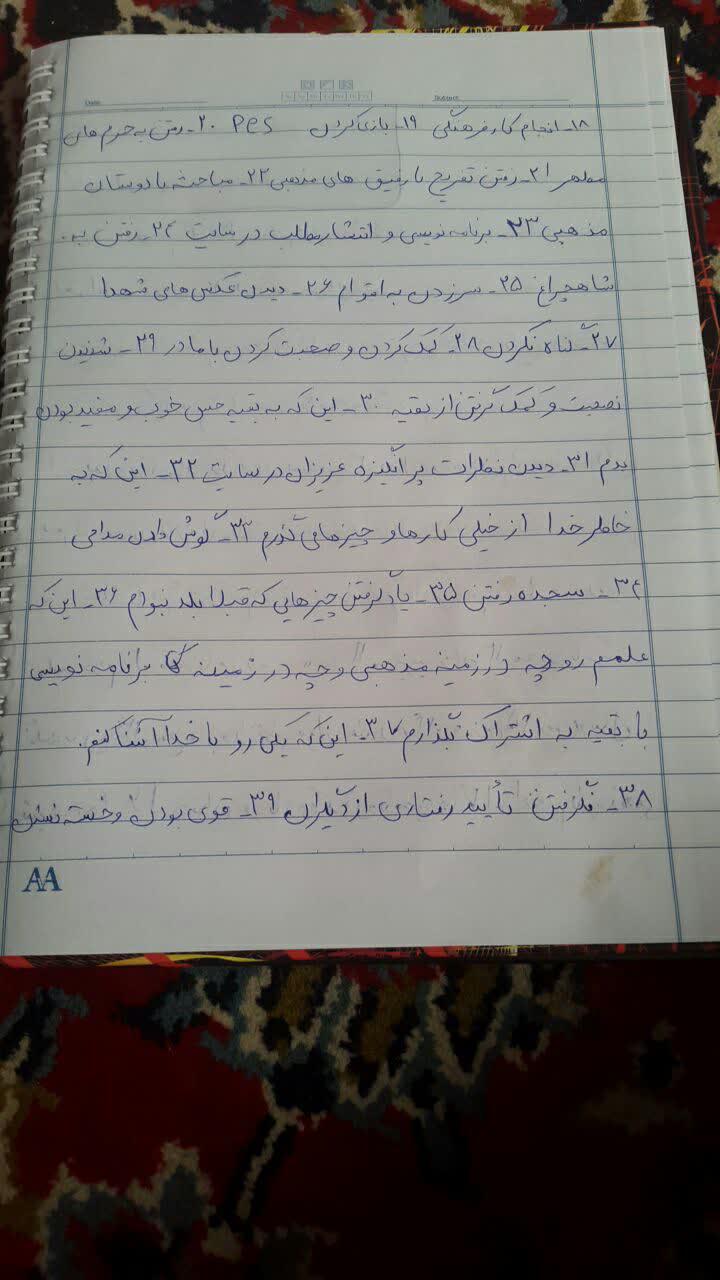 Date: Subject:
۱۸- انجام کار فرهنگی ۱۹- بازی کردن PES ۲۰- رفتن به حرم های
مطهر ۲۱- رفتن تفریح با رفیق های مذهبی ۲۲- مباحثه با دوستان
مذهبی ۲۳- برنامه نویسی و انتشار مطلب در سایت ۲۴- رفتن به
شاهچراغ ۲۵- سر زدن به اقوام ۲۶- دیدن عکس های شهدا
۲۷- گناه نکردن ۲۸- کمک کردن و صحبت کردن با مادر ۲۹- شنیدن
نصیحت و کمک گرفتن از بقیه ۳۰- این که به بقیه حس خوب و مفید بودن
بدم ۳۱- دیدن نظرات پر انگیزه عزیزان در سایت ۳۲- این که به
خاطر خدا از خیلی کارها و چیزهای گذرم ۳۳- گوش دادن مداحی
۳۴- سجده رفتن ۳۵- یاد گرفتن چیزهایی که قبلا بلد نبودم ۳۶- این که
علمم رو چه در زمینه مذهبی و چه در زمینه برنامه نویسی
با بقیه به اشتراک بگذارم ۳۷- این که یکی رو با خدا آشنا کنم.
۳۸- گرفتن تأیید رفتاری از دیگران ۳۹- قوی بودن و خسته نشدن
AA